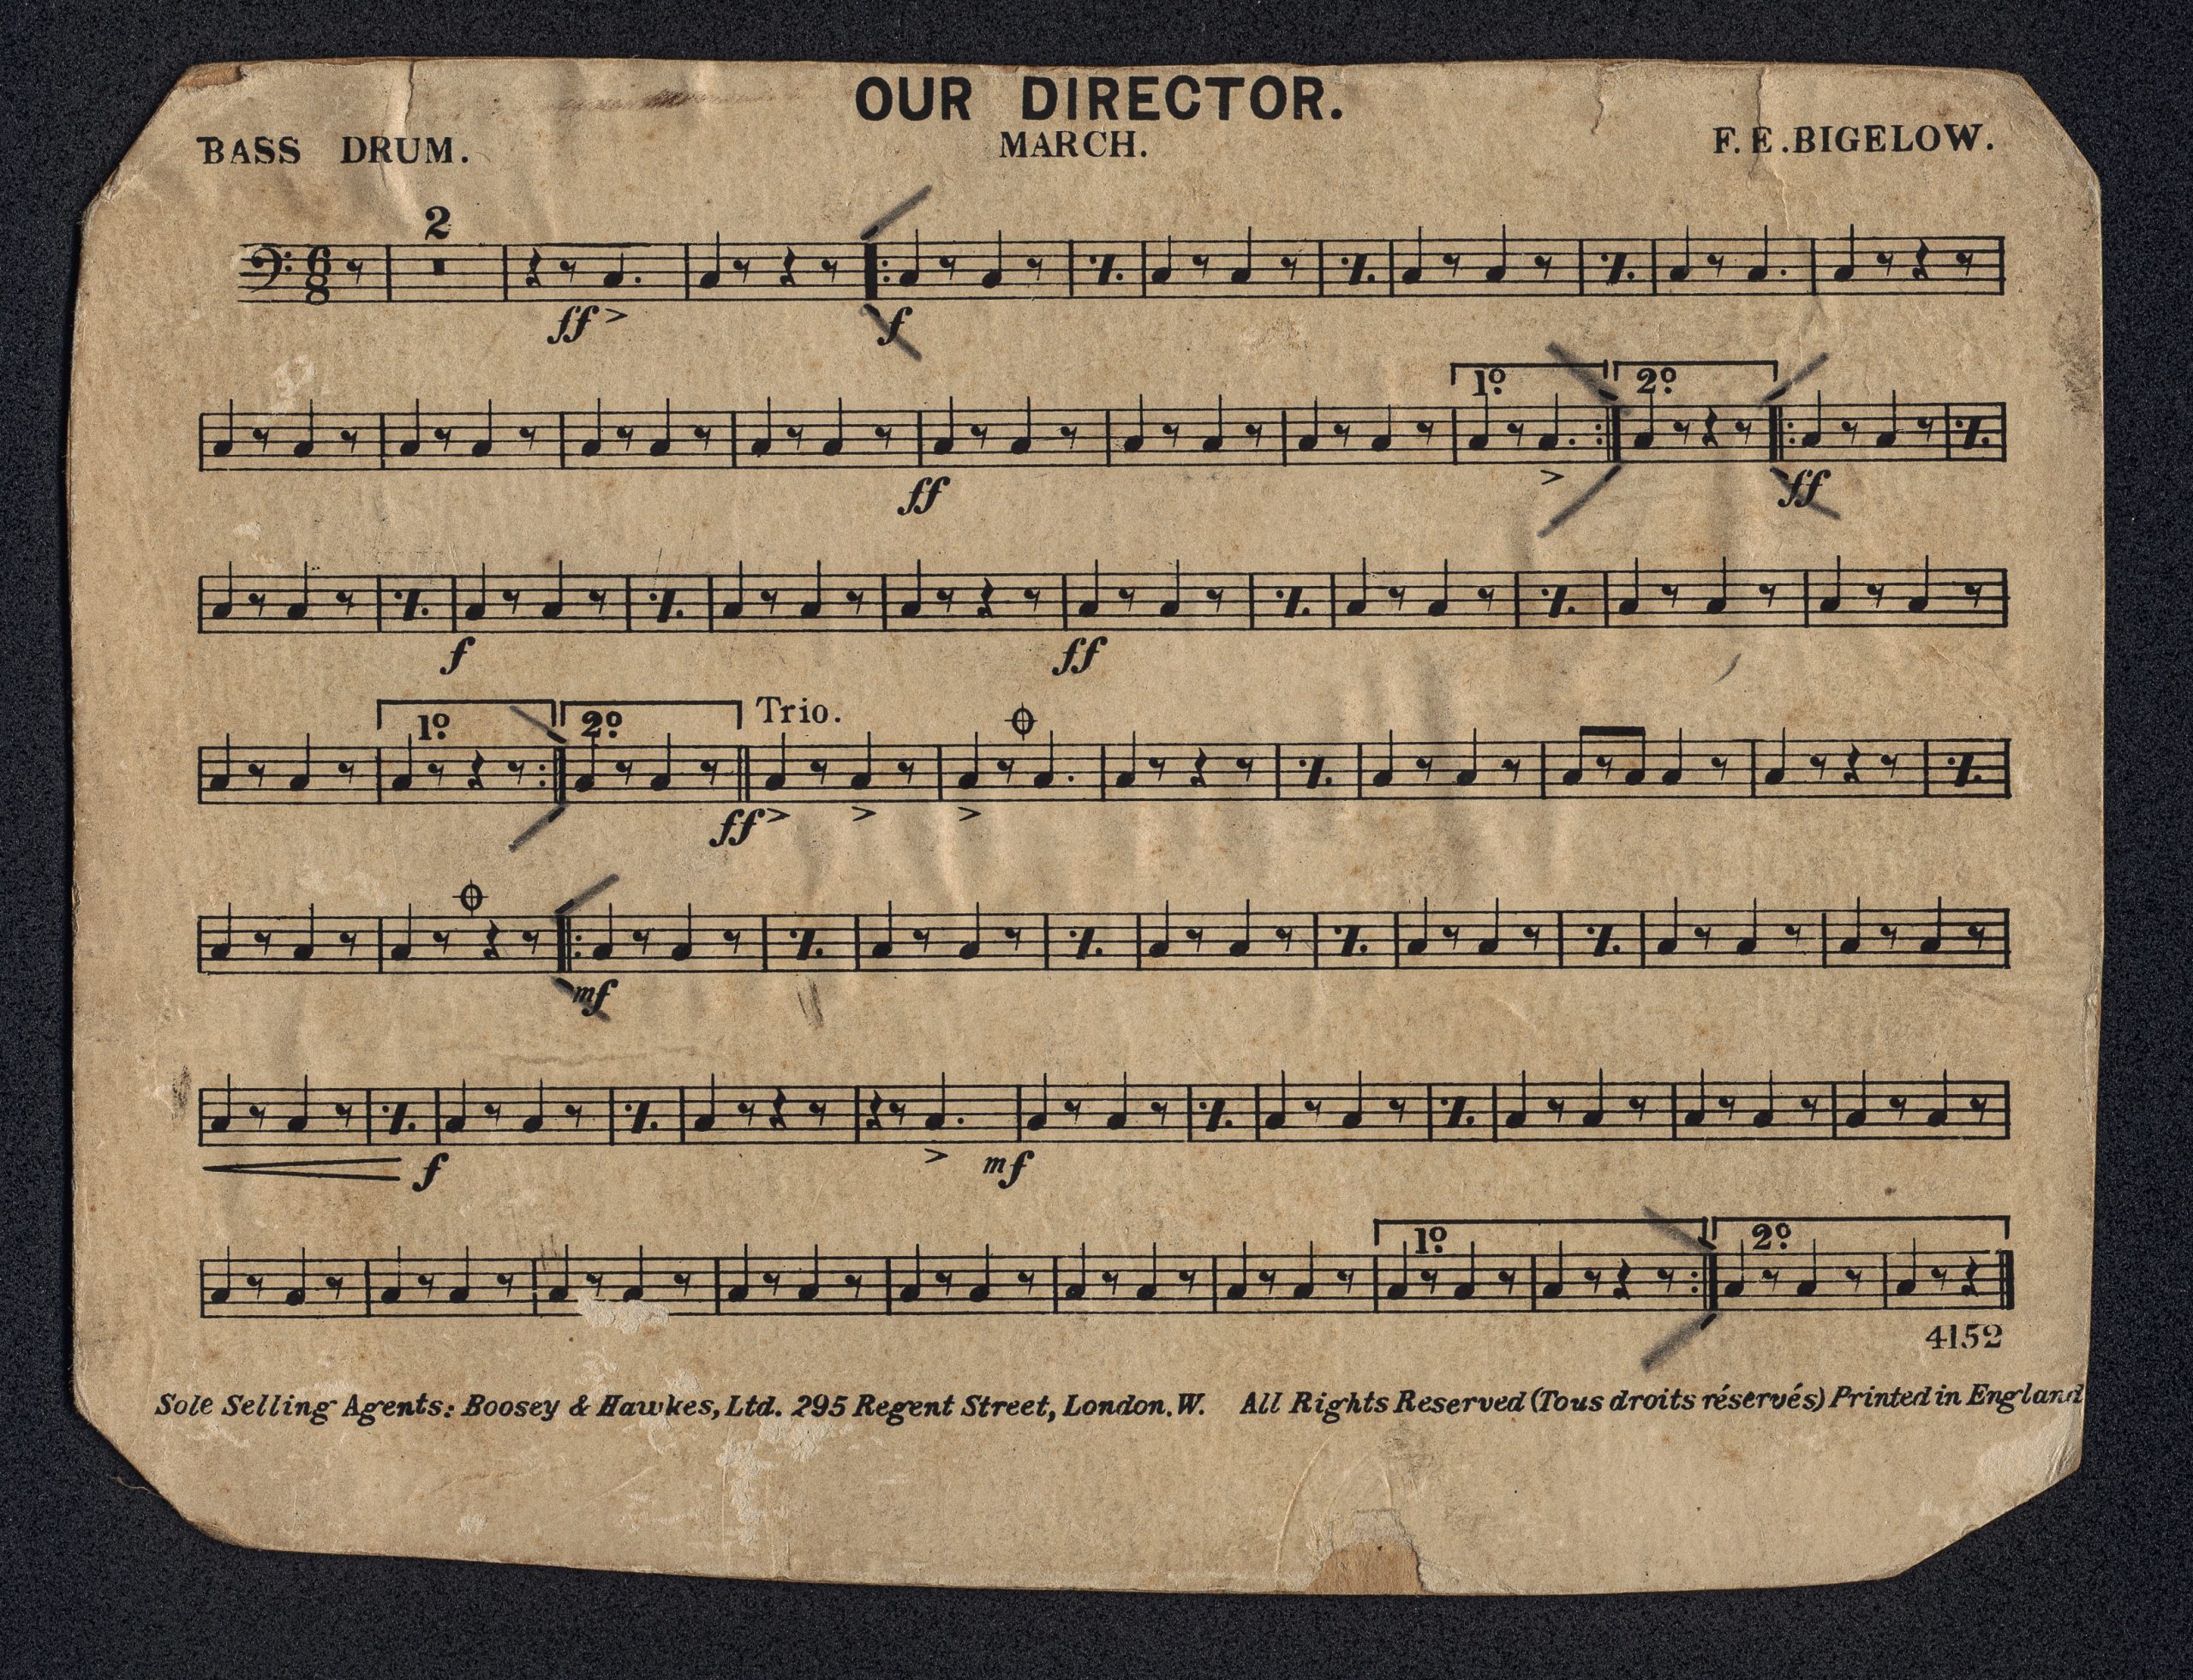 OUR DIRECTOR.
MARCH.
BASS DRUM.
F. E. BIGELOW.
2
6
8
ff
f
1º
2º
ff
ff
f
ff
1º
2º
Trio.
ff
mf
f
mf
1º
2º
4152
Sole Selling Agents: Boosey & Hawkes, Ltd. 295 Regent Street, London. W. All Rights Reserved (Tous droits réservés) Printed in England